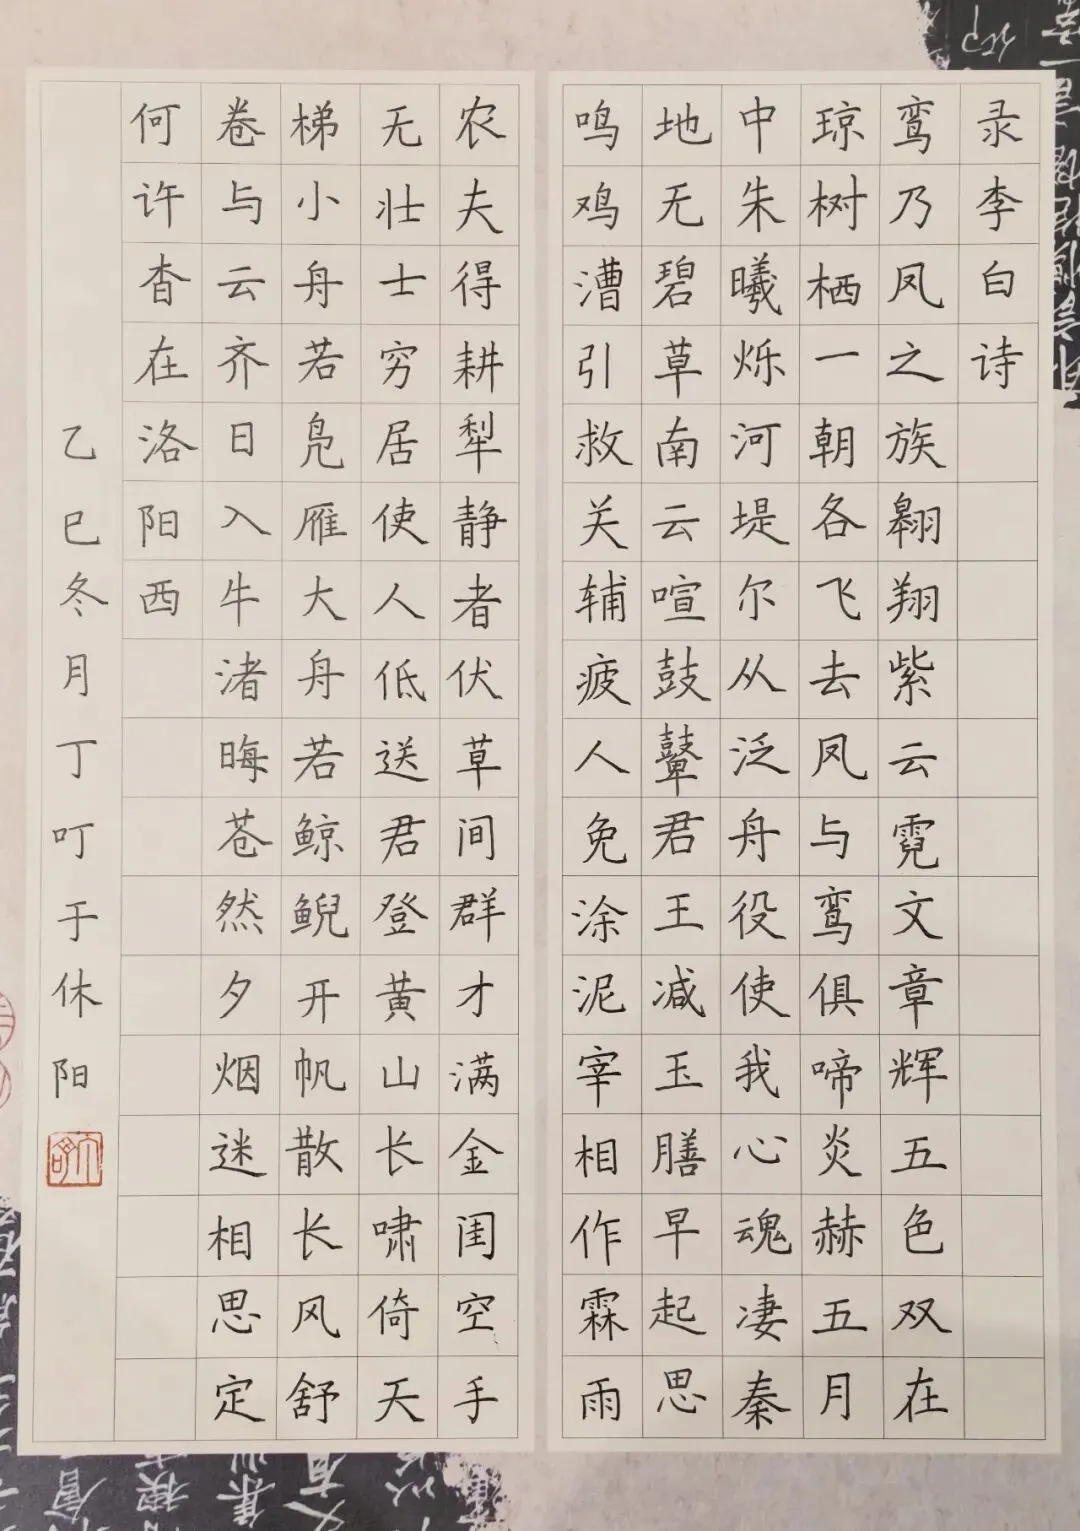 录李白诗
鸾乃凤之族翱翔紫云霓文章辉五色双在
琼树栖一朝各飞去凤与鸾俱啼炎赫五月
中朱曦烁河堤尔从泛舟役使我心魂凄秦
地无碧草南云喧鼓鼙君王减玉膳早起思
鸣鸡漕引救关辅疲人免涂泥宰相作霖雨
农夫得耕犁静者伏草间群才满金闺空手
无壮士穷居使人低送君登黄山长啸倚天
梯小舟若凫雁大舟若鲸鲵开帆散长风舒
卷与云齐日入牛渚晦苍然夕烟迷相思定
何许杳在洛阳西
乙巳冬月丁叮于休阳